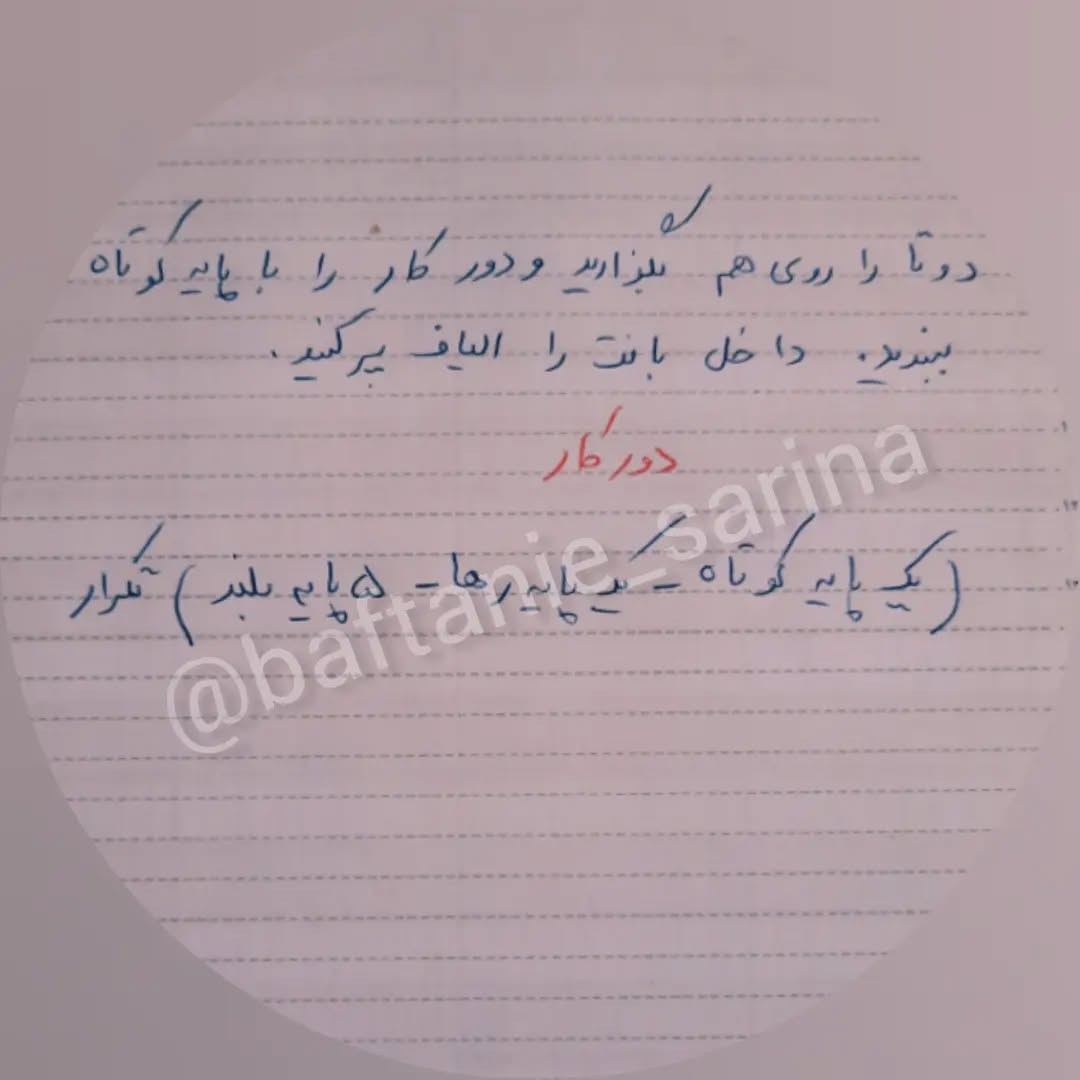 دوتا را روی هم بگذارید و دور کار را با پایه کوتاه
ببندید. داخل بافت را الیاف پر کنید.
دور کار
(یک پایه کوتاه - یک پایه رها - ۵ پایه بلند) تکرار
@baftanie_sarina